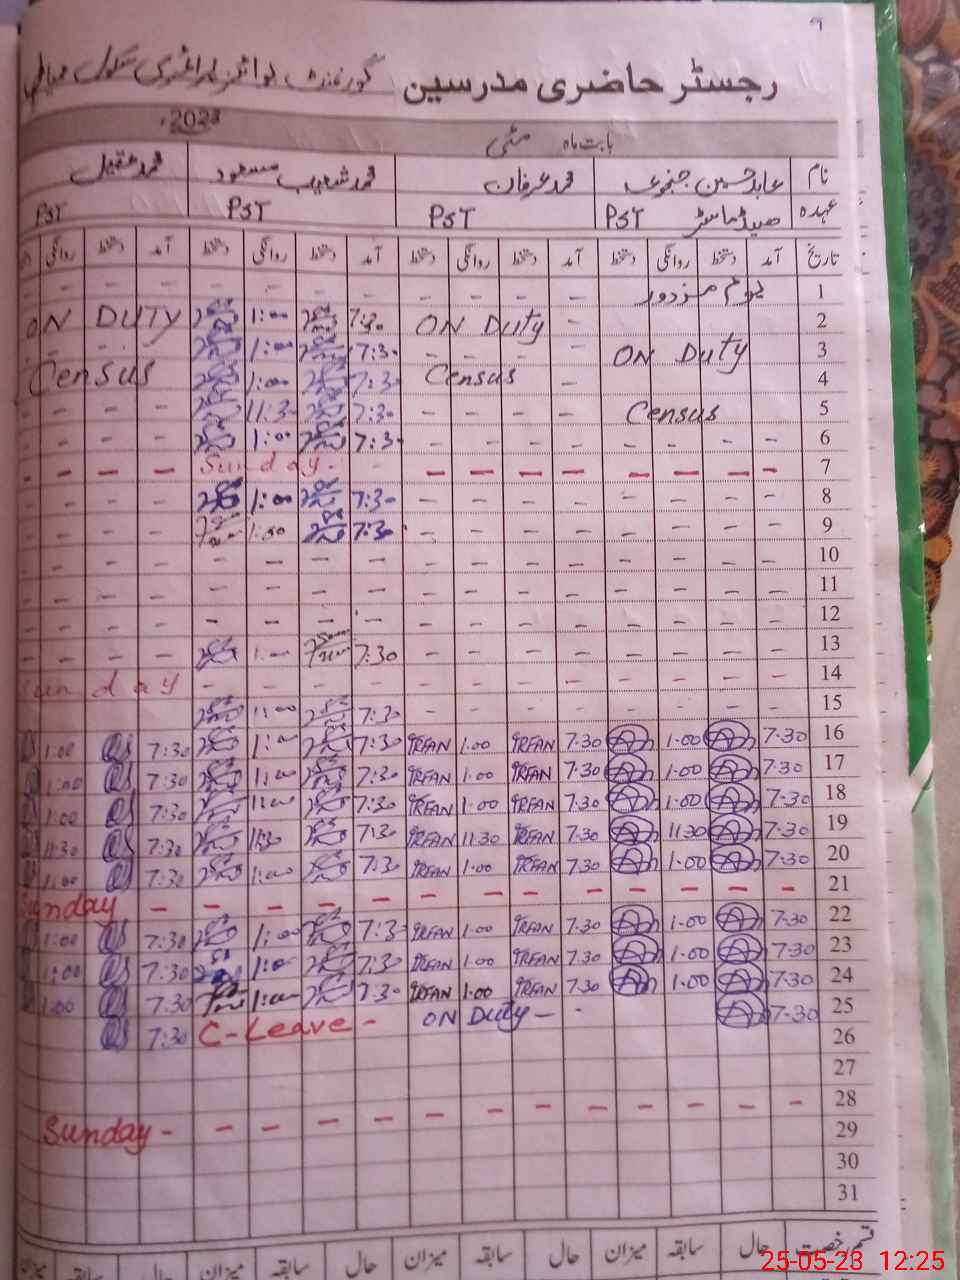 ۹
رجسٹر حاضری مدرسین گورنمنٹ بوائز پرائمری سکول
بابت ماہ مئی 2023ء
نام عابد حسین جنجوعہ محمد عرفان محمد شعیب مسعود محمد عقیل
عہدہ ہیڈ ماسٹر PST PST PST PST
تاریخ آمد دستخط روانگی دستخط آمد دستخط روانگی دستخط آمد دستخط روانگی دستخط آمد دستخط روانگی
1 یوم مزدور - - - - - - - - - - -
2 - ON Duty 7:30 1:00 ON DUTY
3 ON Duty - - - - 7:30 1:00 - - -
4 - Census 7:30 1:00 Census
5 Census - - - - 7:30 11:30 - - - -
6 - - - - - - - - 7:30 1:00 - - - -
7 - - - - - - - - - Sunday - - - -
8 - - - - - - - - 7:30 1:00 - - - -
9 - - - - - - - - 7:30 1:00 - - - -
10 - - - - - - - - - - - - - - -
11 - - - - - - - - - - - - - - -
12 - - - - - - - - - - - - - - -
13 - - - - - - - - 7:30 1:00 - - - -
14 - - - - - - - - - - - - Sunday
15 - - - - - - - - 7:30 1:00
16 7.30 1.00 7.30 IRFAN 1.00 IRFAN 7:30 1:00 7:30 1:00
17 7.30 1.00 7.30 IRFAN 1.00 IRFAN 7:30 1:00 7:30 1:00
18 7.30 1.00 7.30 IRFAN 1.00 IRFAN 7:30 1:00 7:30 1:00
19 7.30 11.30 7.30 IRFAN 11.30 IRFAN 7:30 11:30 7:30 11:30
20 7.30 1.00 7.30 IRFAN 1.00 IRFAN 7:30 1:00 7:30 1:00
21 - - - - - - - - - - - - Sunday
22 7.30 1.00 7.30 IRFAN 1.00 IRFAN 7:30 1:00 7:30 1:00
23 7.30 1.00 7.30 IRFAN 1.00 IRFAN 7:30 1:00 7:30 1:00
24 7.30 1.00 7.30 IRFAN 1.00 IRFAN 7:30 1:00 7:30 1:00
25 7.30 ON Duty - - C-Leave - 7:30
26
27
28 - - - - - - - - - - - - Sunday
29
30
31
قسم رخصت حال سابقہ میزان حال سابقہ میزان حال سابقہ میزان حال سابقہ میزان
25-05-23 12:25